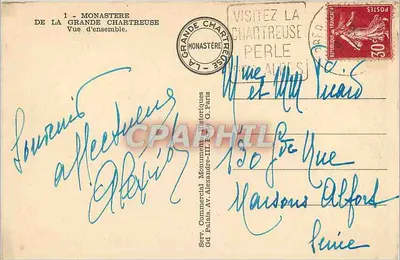 1 - MONASTERE
DE LA GRANDE CHARTREUSE
Vue d'ensemble.
LA GRANDE CHARTREUSE
MONASTÈRE
VISITEZ LA
CHARTREUSE
PERLE
POSTES
30c
Souvenir
affectueux
Mme et Mr
130 Gde Rue
Maisons Alfort
Seine
Serv. Commercial Monuments Historiques
Gd Palais, Av. Alexandre-III, Paris
CPARHIL